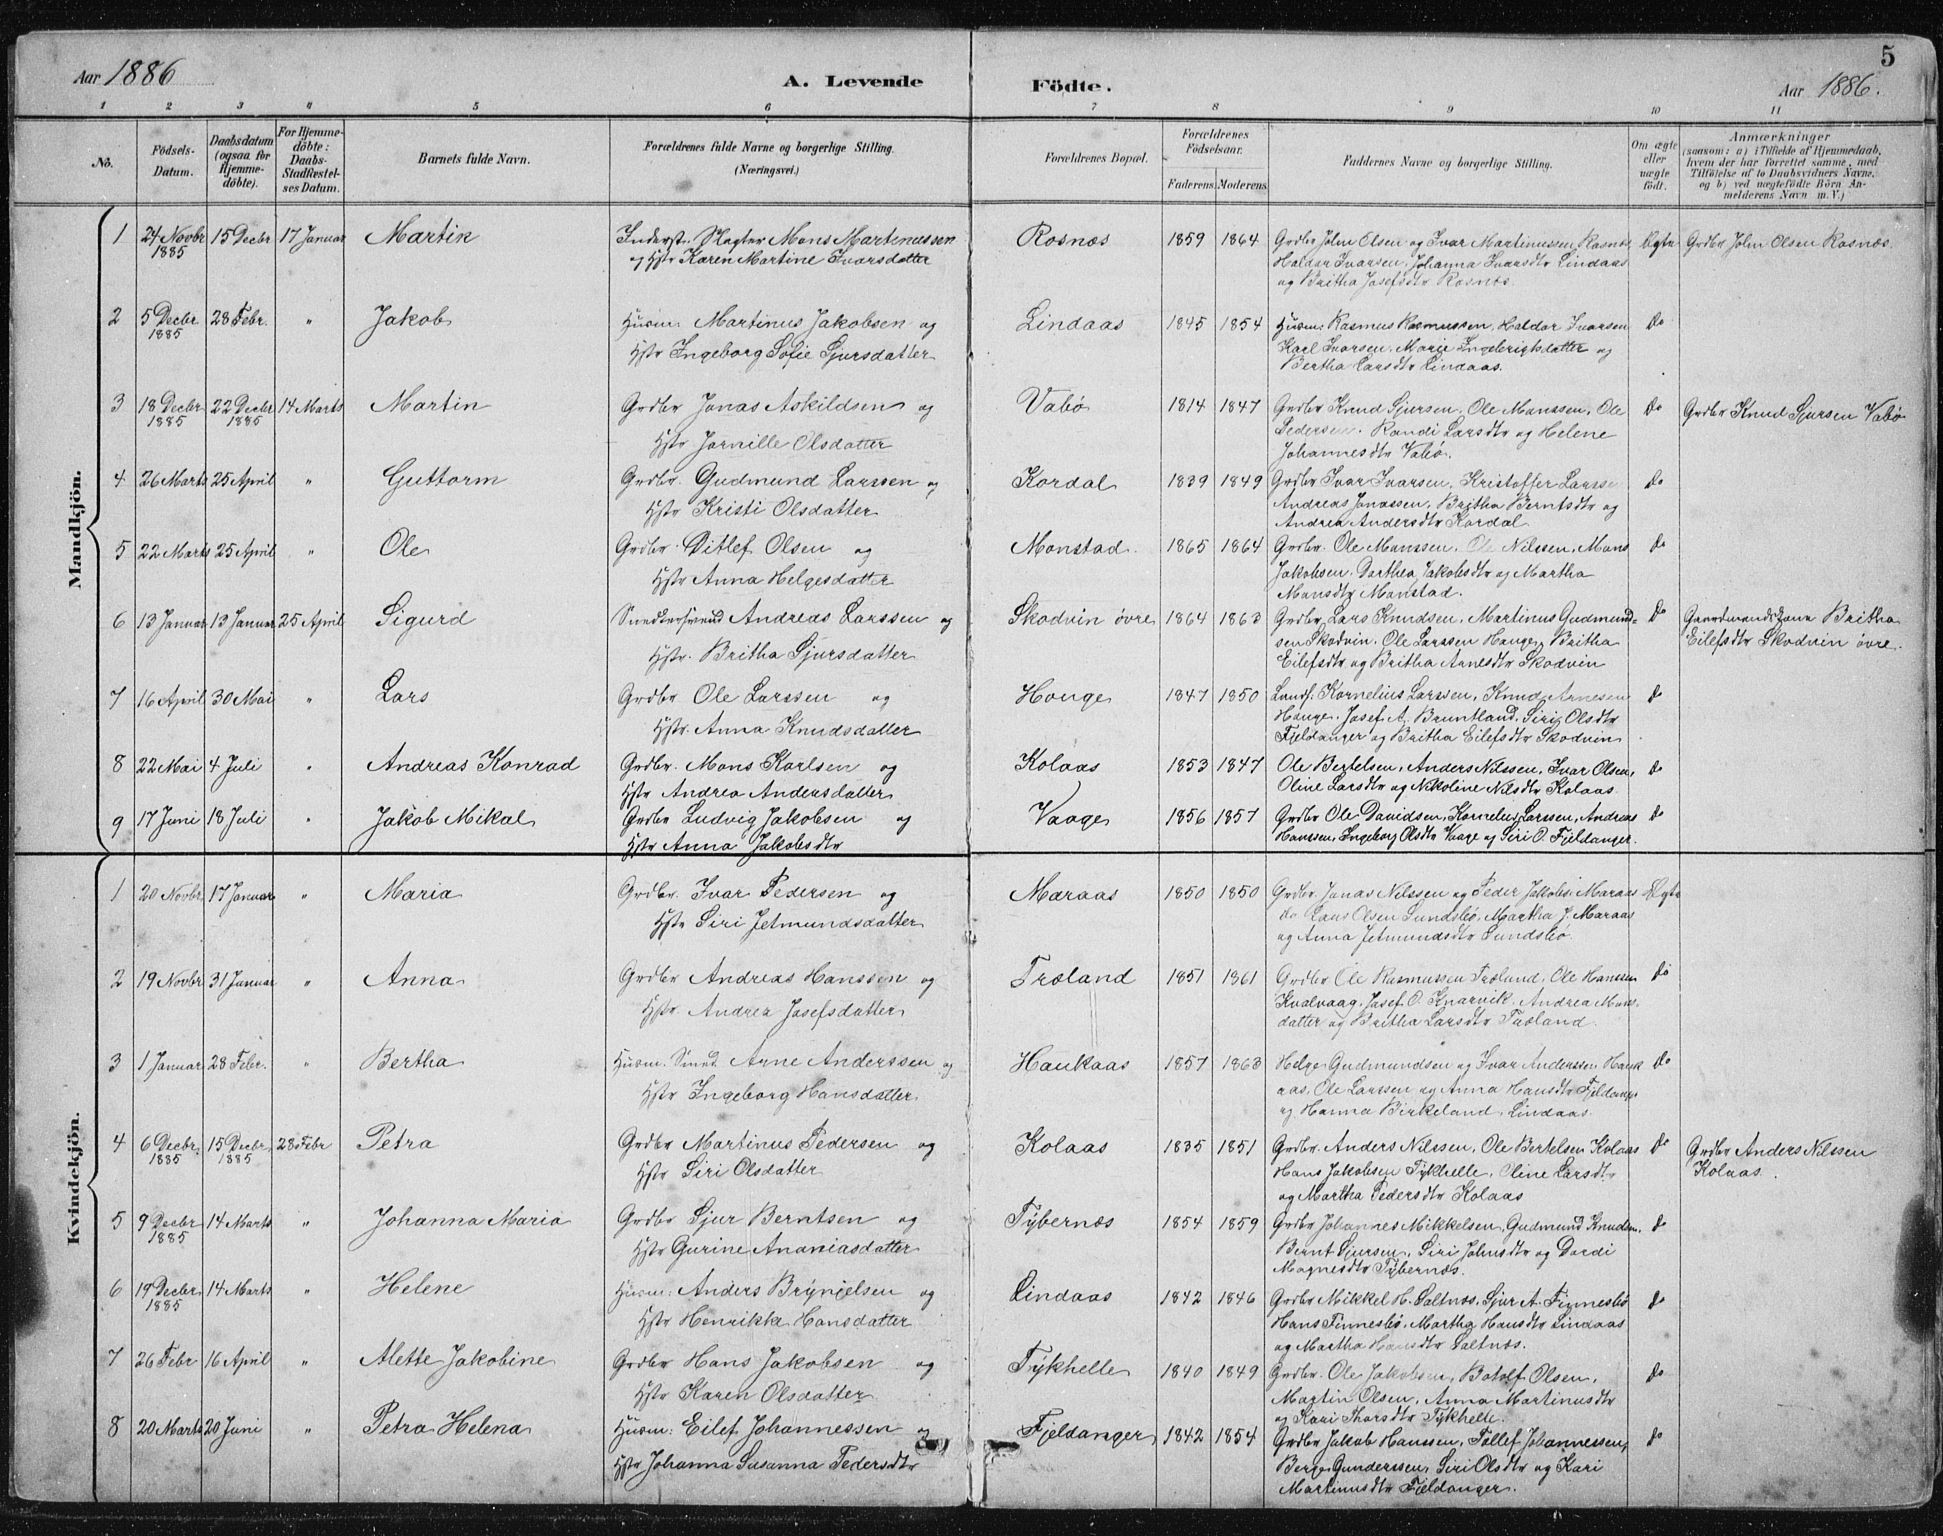 5
Aar 1886 A. Levende Fødte. Aar 1886.
1 2 3 4 5 6 7 8 9 10 11
No. Fødsels-Datum. Daabsdatum (ogsaa for Hjemmedöbte). For Hjemmedöbte: Daabs-Stadfæstelses Datum. Barnets fulde Navn. Forældrenes fulde Navne og borgerlige Stilling. (Næringsvei.) Forældrenes Bopæl. Forældrenes Födselsaar. Faderens. Moderens. Faddernes Navne og borgerlige Stilling. Om ægte eller uægte födt. Anmærkninger (saasom: a) i Tilfælde af Hjemmedaab, hvem der har forrettet samme, med Tilföielse af to Daabsvidners Navne, og b) ved uægtefödte Börn Anmelderens Navn m. V.)
Mandkjön.
1 24 Novbr 15 Decbr 17 Januar Martin Inderst. Slagter Mons Martinussen Rosnæs 1859 1864 Grdbr John Olsen og Ivar Martinussen Rosnæs, Ægte Grdbr John Olsen Rosnæs.
1885 og Hstr Karen Martine Ivarsdatter Haldor Ivarsen, Johanna Ivarsdtr Lindaas
og Britha Josefsdtr Rosnæs.
2 5 Decbr 28 Febr. " Jakob Husm: Martinus Jakobsen og Lindaas 1845 1854 Husm: Rasmus Rasmussen, Haldor Ivarsen Do
1885 Hstr Ingeborg Sofie Sjursdatter Karl Ivarsen, Marie Ingebrigtsdatter og
Bertha Larsdtr Lindaas.
3 18 Decbr 22 Decbr 14 Marts Martin Grdbr Jonas Askildsen og Vabø 1814 1847 Grdbr Knud Sjursen, Ole Monssen, Ole Do Grdbr Knud Sjursen Vabø
1885 1885 Hstr Jornille Olsdatter Pedersen. Randi Larsdtr og Helene
Johannesdtr Vabø.
4 26 Marts 25 April " Guttorm Grdbr. Gudmund Larssen og Kordal 1839 1849 Grdbr Ivar Ivarsen, Kristoffer Larsse Do
Hstr Kristi Olsdatter Andreas Jonassen, Britha Berntsdtr og
Andrea Andersdtr Kordal
5 22 Marts 25 April " Ole Grdbr. Ditlef Olsen og Monstad. 1865 1864 Grdbr. Ole Monssen, Ole Nilssen, Mons Do
Hstr Anna Helgesdatter Jakobsen. Dorthea Jakobsdtr og Martha
Monsdtr Monstad.
6 13 Januar 13 Januar 25 April Sigurd Snedkersvend Andreas Larssen og Skodvin øvre 1864 1863 Grdbr Lars Knudsen, Martinus Gudmund- Do Gaardmandskone Britha
Hstr. Britha Sjursdatter sen Skodvin, Ole Larssen Hauge, Britha Eilefsdtr Skodvin øvre.
Eilefsdtr og Britha Arnesdtr Skodvin
7 16 April 30 Mai " Lars Grdbr Ole Larssen og Hauge 1847 1850 Lundf. Kornelius Larssen, Knud Arnesen Do
Hstr. Anna Knudsdatter Hauge, Josef A. Bruntland, Siri Olsdtr
Fjeldanger og Britha Eilefsdtr Skodvin
8 22 Mai 4 Juli " Andreas Konrad Grdbr. Mons Karlsen og Kolaas 1853 1847 Ole Bertelsen, Anders Nilssen, Ivar Olsen, Do
Hstr Andrea Andersdatter Oline Larsdtr og Nikoline Nilsdtr Kolaas
9 17 Juni 18 Juli " Jakob Mikal Grdbr Ludvig Jakobsen og Vaage 1856 1857 Grdbr Ole Davidsen, Kornelius Larssen, Andreas Do
Hstr Anna Jakobsdtr Hanssen, Ingeborg Olsdtr Vaage og Siri O. Fjeldanger.
Kvindekjön.
1 20 Novbr. 17 Januar " Maria Grdbr. Ivar Pedersen og Maraas 1850 1850 Grdbr Jonas Nilssen og Peder Jakobs. Maraas Ægte
Hstr Siri Jetmundsdatter do Lars Olsen Sundsbø, Martha J. Maraas
og Anna Jetmundsdtr Sundsbø.
2 19 Novbr 31 Januar " Anna Grdbr Andreas Hanssen og Træland 1851 1861 Grdbr Ole Rasmussen Træland, Ole Hanssen Do
Hstr Andrea Josefsdatter Kvalvaag, Josef O. Knarvik, Andrea Mons-
datter og Britha Larsdtr Træland.
3 1 Januar 28 Febr. " Bertha Husm. Smed Arne Anderssen og Haukaas 1857 1863 Helge Gudmundsen og Ivar Anderssen Hauk Do
Hstr Ingeborg Hansdatter aas, Ole Larssen og Anna Hansdtr Fjeldanger
og Hanna Birkeland, Lindaas.
4 6 Decbr. 15 Decbr. 28 Febr Petra Grdbr Martinus Pedersen og Kolaas 1835 1851 Grdbr. Anders Nilssen, Ole Bertelsen Kolaas Do Grdbr Anders Nilssen
1885 1885 Hstr Siri Olsdatter Hans Jakobsen Tykhelle, Oline Larsdtr Kolaas.
og Martha Pedersdtr Kolaas
5 9 Decbr 14 Marts " Johanna Maria Grdbr Sjur Berntsen og Tybernæs 1854 1859 Grdbr Johannes Mikkelsen, Gudmund Knudsen. do
1885 Hstr Gurine Ananiasdatter Bernt Sjursen, Siri Johnsdtr og Dordi
Magnesdtr Tybernæs.
6 19 Decbr. 14 Marts " Helene Husm: Anders Brynjelsen og Lindaas 1842 1846 Grdbr Mikkel H. Saltnæs, Sjur A. Finnesbø do
1885 Hstr Henrikke Hansdatter Hans Finnesbø, Martha Hansdtr Lindaas
og Martha Hansdtr Saltnæs.
7 26 Febr 16 April " Alette Jakobine Grdbr Hans Jakobsen og Tykhelle 1840 1849 Grdbr. Ole Jakobsen, Botolf Olsen, do
Hstr Karen Olsdatter Martin Olsen, Anna Martinusdtr
og Kari Thorsdtr Tykhelle.
8 20 Marts 20 Juni " Petra Helena Husm: Eilef Johannessen og Fjeldanger 1842 1854 Grdbr Jakob Hanssen, Tollef Johannessen, do
Hstr Johanna Susanna Pedersdtr Berge Gunderssen, Siri Olsdtr og Kari
Martinusdtr Fjeldanger.